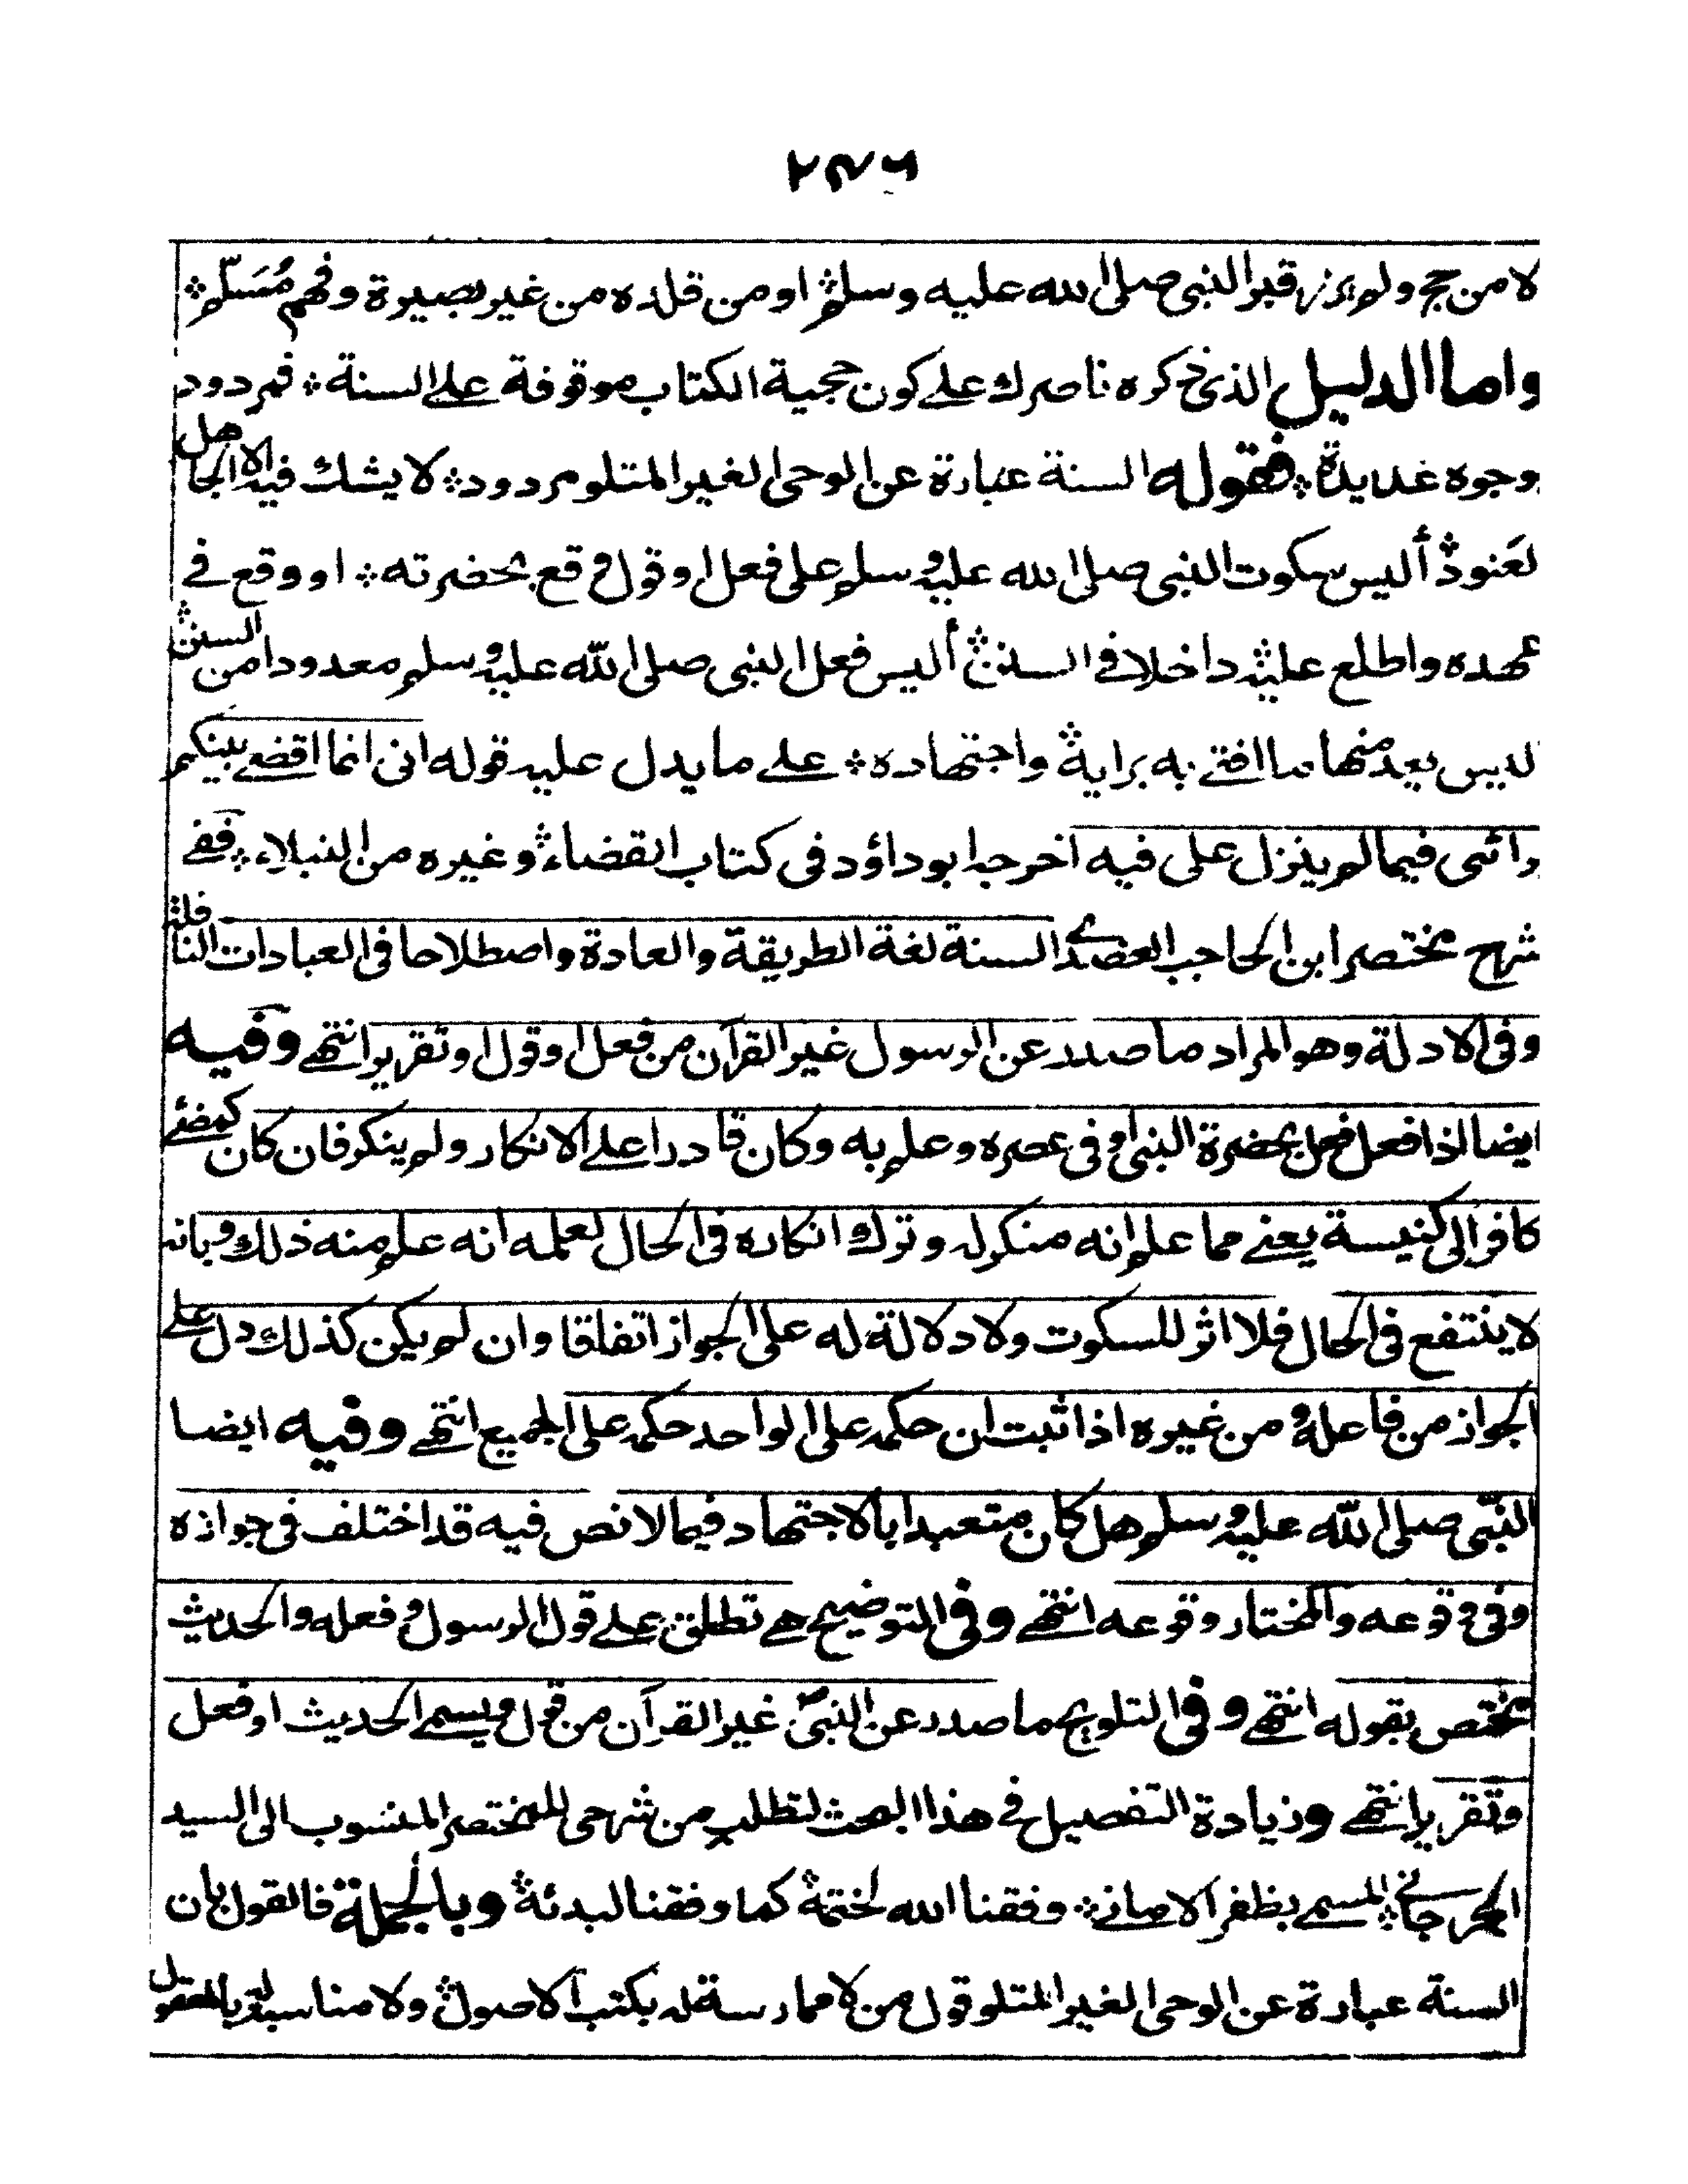 ٢٤٦
لا من حج ولم يزر قبر النبي صلى الله عليه وسلم او من قلده من غير بصيرة وفهم مُسَلّم
واما الدليل الذى ذكره ناصرك على كون حجية الكتاب موقوفة على السنة فمردود
بوجوه عديدة فقوله السنة عبارة عن الوحى الغير المتلو مردود لا يشك فيه الا الجاهل
لعَنود أليس سكوت النبى صلى الله عليه وسلم على فعل او قول وقع بحضرته او وقع في
عهده واطلع عليه داخلا في السنن أليس فعل النبى صلى الله عليه وسلم معدودا من السنن
ليس يعد منها ما افتى به برايه واجتهاده على ما يدل عليه قوله انى انما اقضى بينكم
برائى فيما لم ينزل على فيه اخرجه ابو داؤد فى كتاب القضاء وغيره من النبلاء ففى
شرح مختصر ابن الحاجب العضدى السنة لغة الطريقة والعادة واصطلاحا فى العبادات النافلة
وفى الادلة وهو المراد ما صدر عن الرسول غير القرآن من فعل او قول او تقرير انتهى وفيه
ايضا اذا فعل فعل بحضرة النبى او فى عصره وعلم به وكان قادرا على الانكار ولم ينكر فان كان كمضئ
كافر الى كنيسة يعنى مما علم انه منكر له وترك انكاره فى الحال لعلمه انه علم منه ذلك وبانه
لا ينتفع فى الحال فلا اثر للسكوت ولا دلالة له على الجواز اتفاقا وان لم يكن كذلك دل على
الجواز من فاعله ومن غيره اذا ثبت ان حكمه على الواحد حكمه على الجميع انتهى وفيه ايضا
النبّى صلى الله عليه وسلم هل كان متعبدا بالاجتهاد فيما لا نص فيه قد اختلف فى جوازه
وفى وقوعه والمختار وقوعه انتهى وفى التوضيح هى تطلق على قول الرسول وفعله والحديث
مختص بقوله انتهى وفى التلويح ما صدر عن النبى غير القرآن من قول ويسمى الحديث او فعل
وتقرير انتهى وزيادة التفصيل فى هذا البحث لتطلب من شرحى للمختصر المنسوب الى السيد
الجرجانى المسمى بظفر الامانى وفقنا الله لختمه كما وفقنا لبدئه وبالجملة فالقول بان
السنة عبارة عن الوحى الغير المتلو قول من لا ممارسة له بكتب الاصول ولا مناسبة له بالمعقول